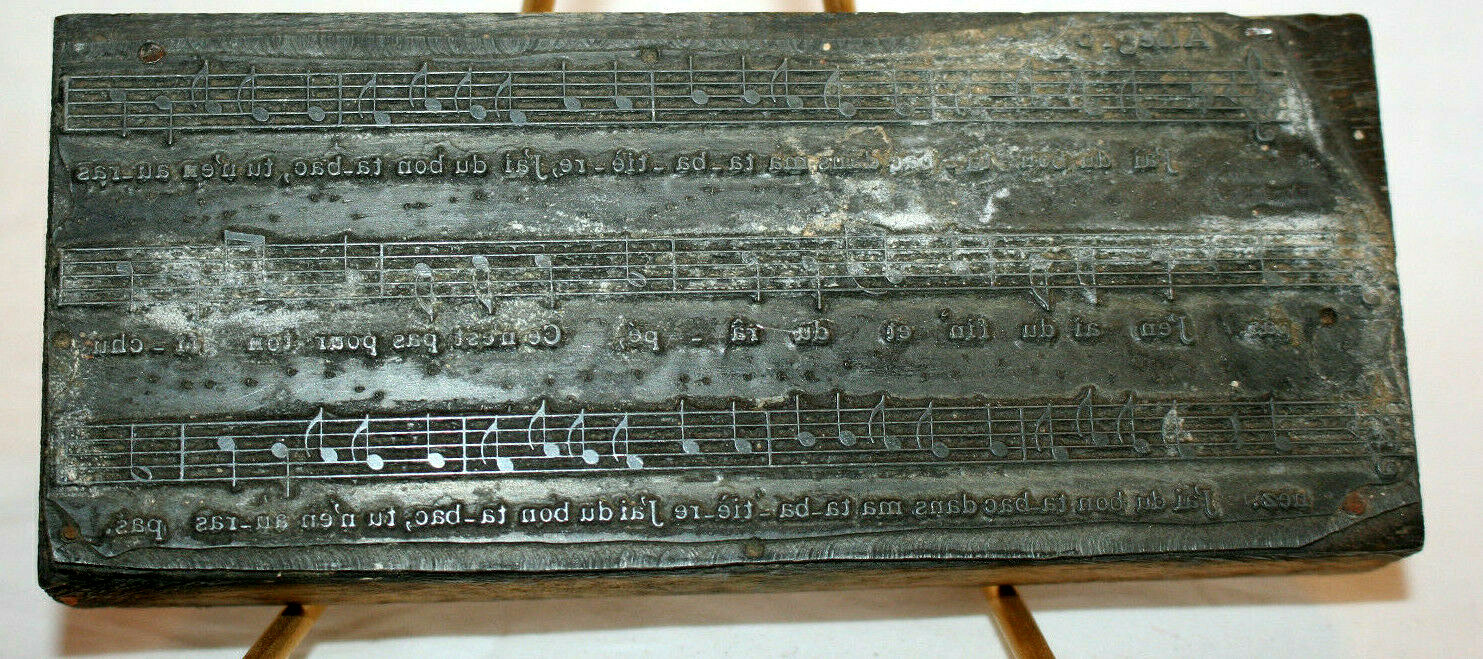 Allegro
J'ai du bon ta_bac dans ma ta_ba_tiè_re, J'ai du bon ta_bac, tu n'en au_ras
pas. J'en ai du fin et du râ _ pé, Ce n'est pas pour ton fi _ chu
nez. J'ai du bon ta_bac dans ma ta_ba_tiè_re J'ai du bon ta_bac, tu n'en au_ras pas.